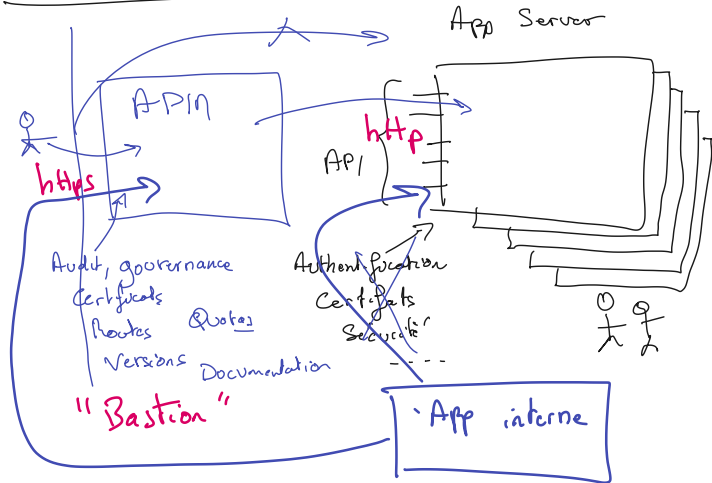 App Server
APIM
http
API
https
Audit, gouvernance
Certificats
Routes
Quotas
Versions
Documentation
"Bastion"
Authentification
Certifats
Securité
App interne